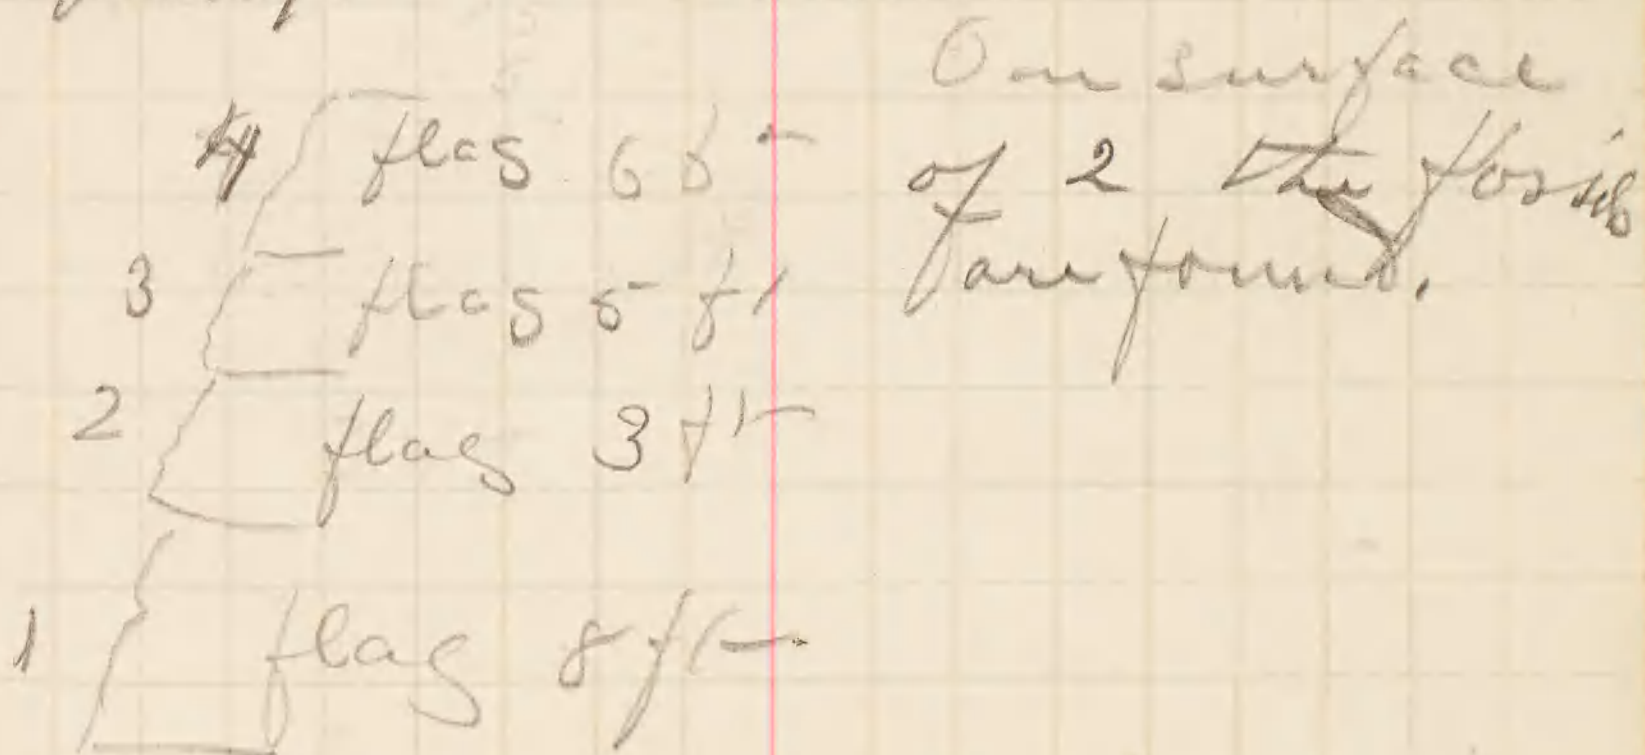 4 flag 6 ft
3 flag 5 ft
2 flag 3 ft
1 flag 8 ft
On surface
of 2 the fossils
are found.